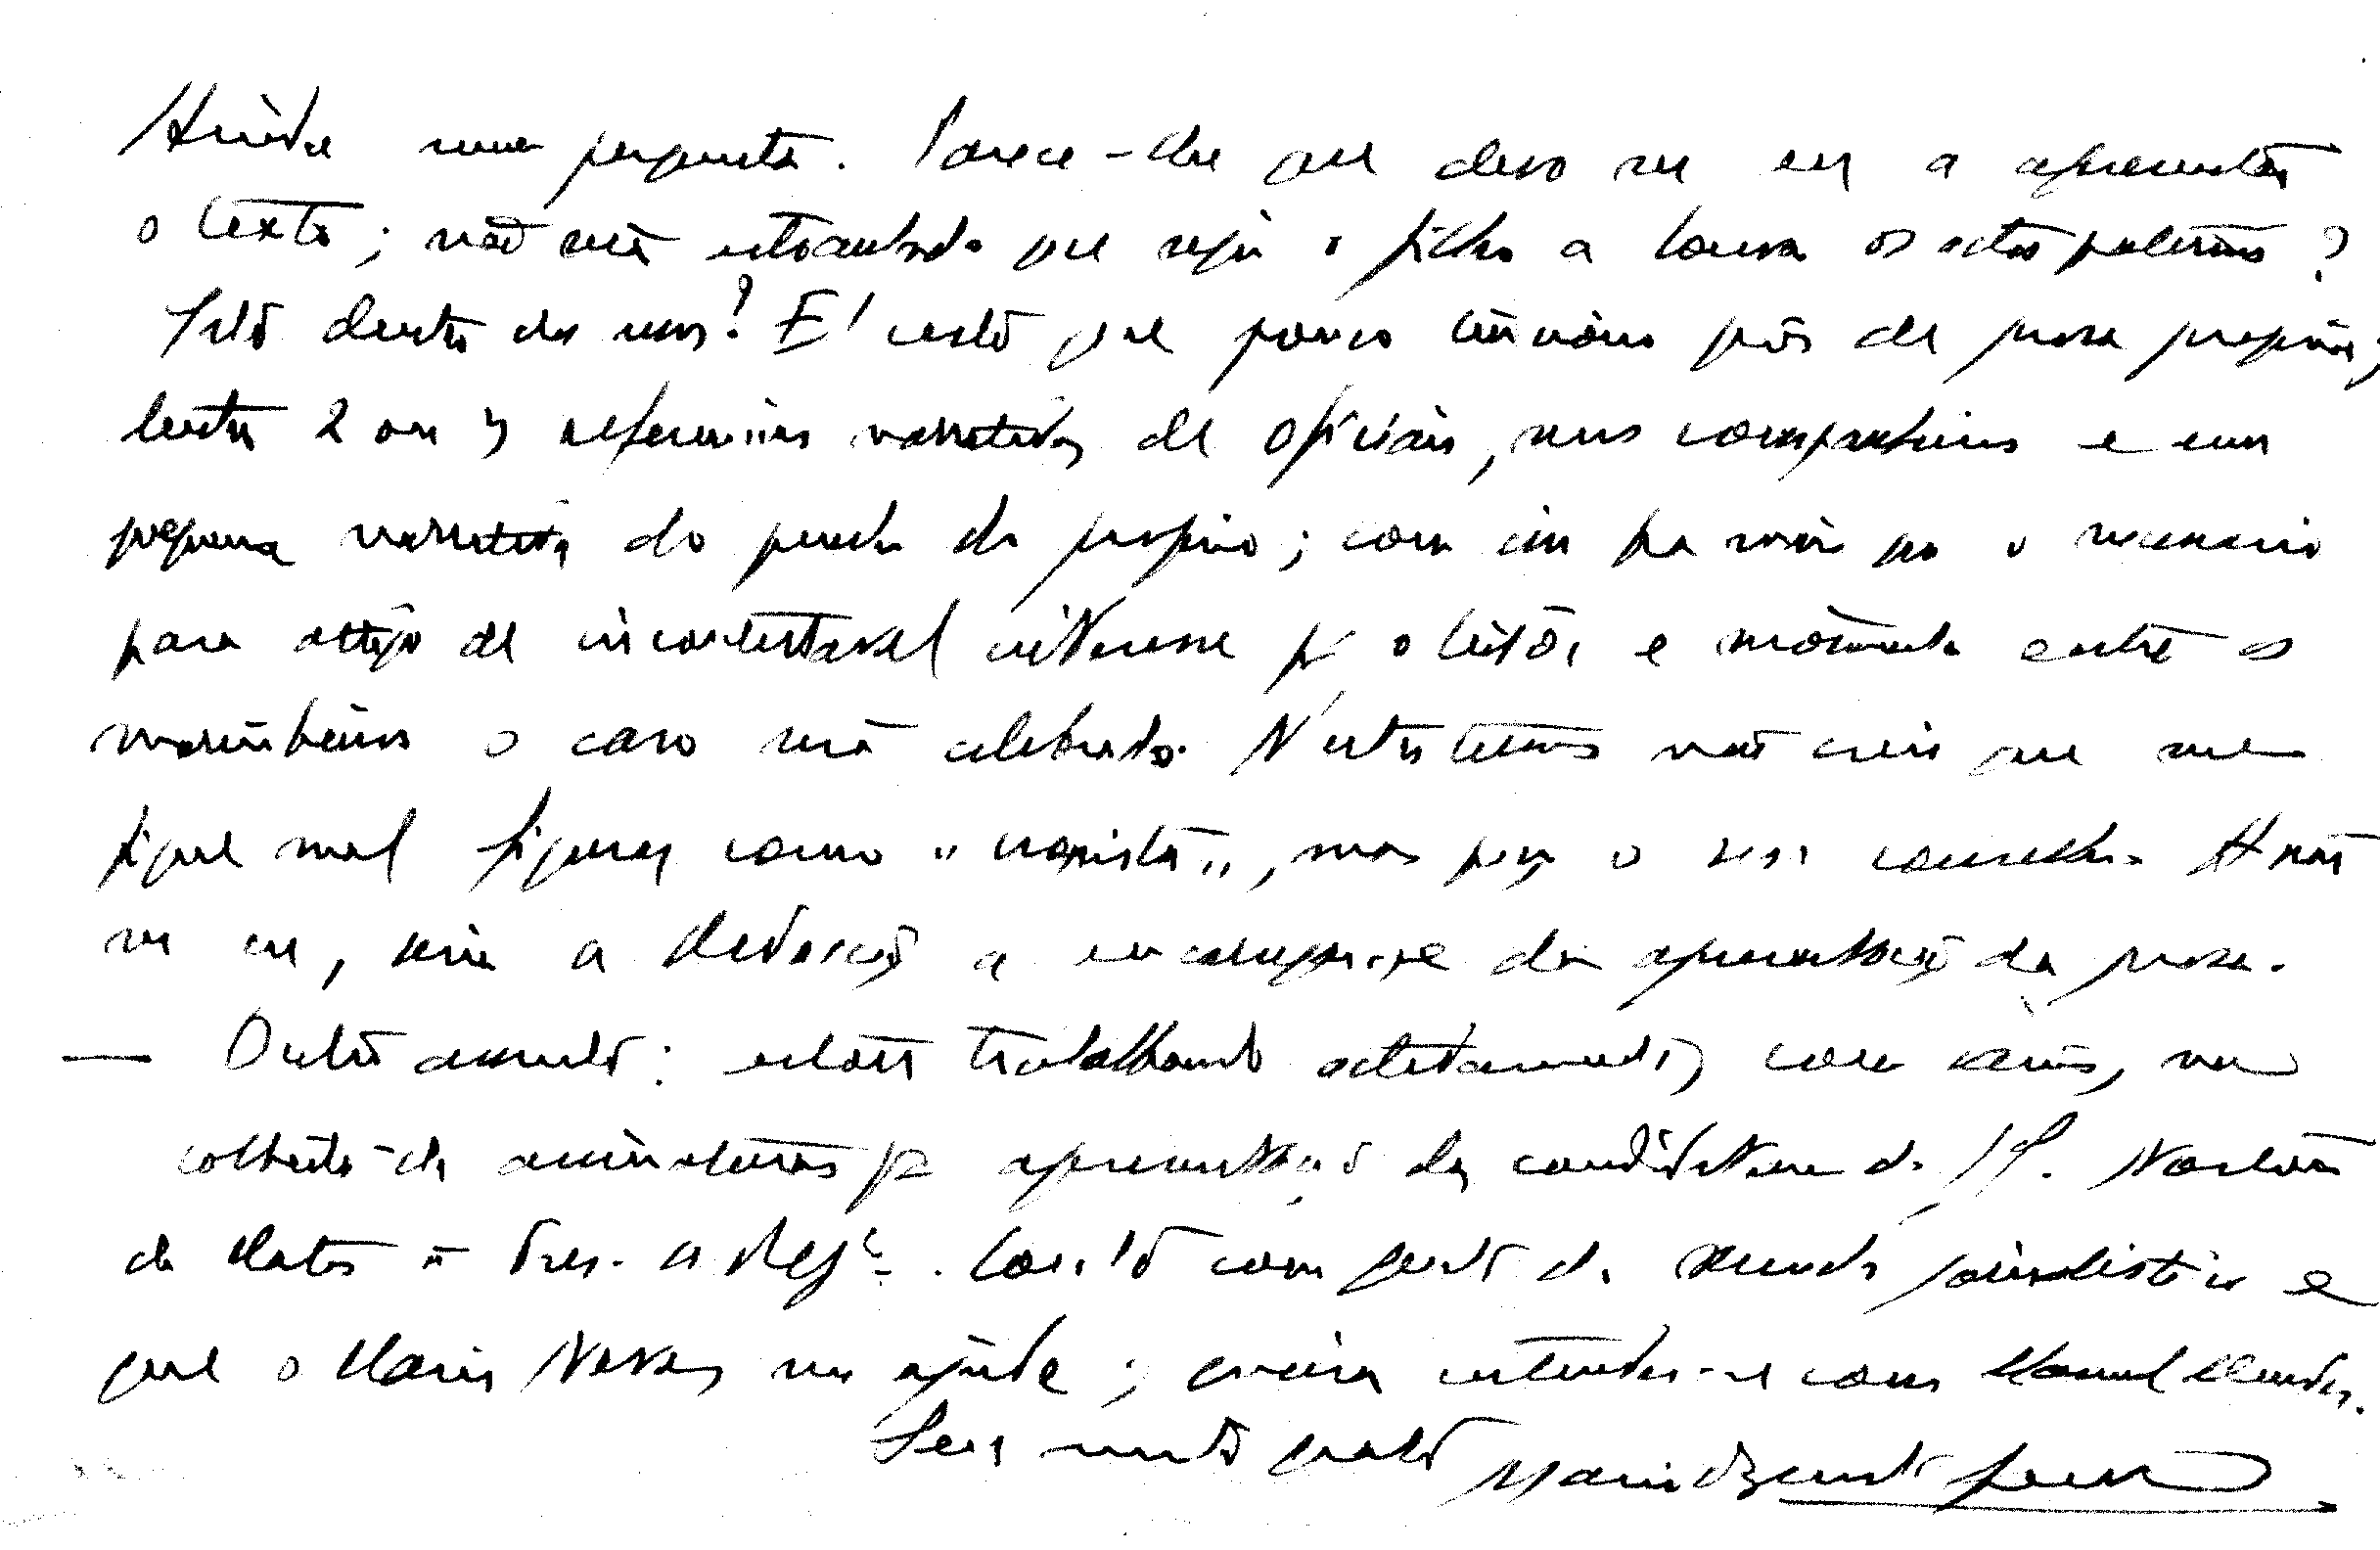 Ainda uma pergunta. Parece-lhe que devo ser eu a apresentar
o texto; não será estranhado que seja o filho a louvar os actos paternos?
Isto dentro do meu! É certo que pouco terá de prosa própria;
tentar 2 ou 3 referências narrativas de oficiais, seus companheiros e uma
pequena narrativa do punho do próprio; com que o necessário
para artigo de incontestavel interesse p.ª o leitor e mormente entre os
marinheiros o caso será celebrado. N'estes termos não creio que me
fique mal figurar como "cronista", mas peço o seu conselho. A não
ser eu, seria a Redacção a encarregar-se da apresentação da prosa.
— Outro assunto: estou trabalhando activamente, com na
colheita de assinaturas p.ª apresentação da candidatura do Norton
de Matos à Pres. da Rep.ca. Conto com gente do mundo jornalístico e
que o Mario Neves me ajude; queira entender-se com Manuel Mendes.
Seu muito grato